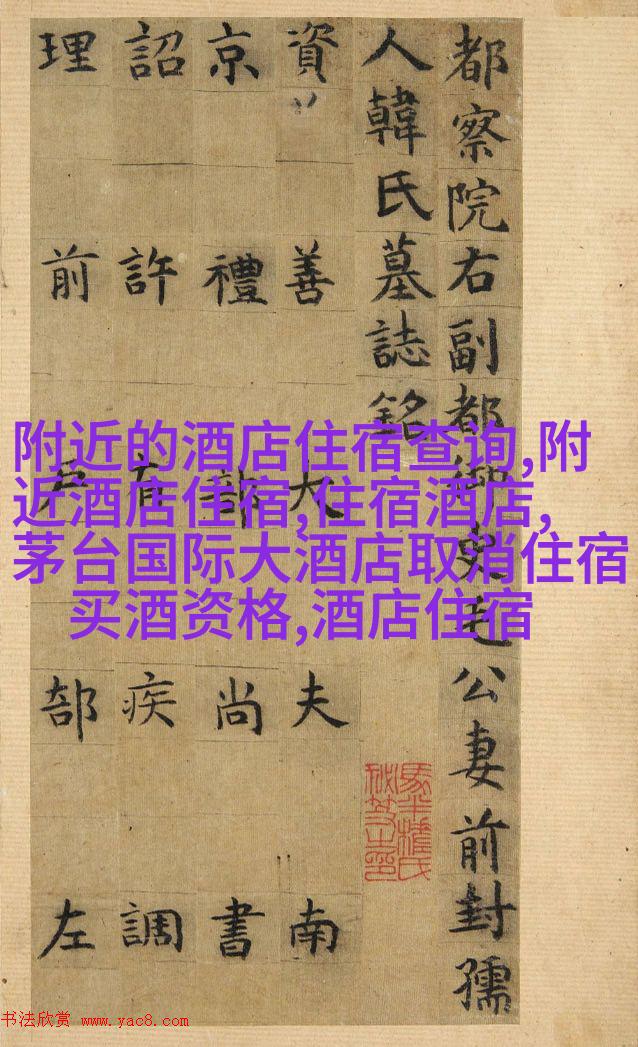 都察院右副都御史毛公妻前封孺
人韓氏墓誌銘
資善大夫南
京禮部尚書
詔許疾調
理前戶部左
附近的酒店住宿查询,附
近酒店住宿,住宿酒店,
茅台国际大酒店取消住宿
买酒资格,酒店住宿
书法欣赏 www.yac8.com